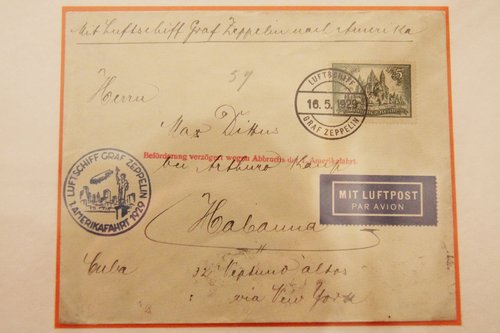 Mit Luftschiff Graf Zeppelin nach Amerika
59
LUFTSCHIFF
16.5.1929
GRAF ZEPPELIN
Herrn
Max
Beförderung verzögert wegen Abbruchs der Amerikafahrt.
bei Arthuro
LUFTSCHIFF GRAF ZEPPELIN
1. AMERIKAFAHRT 1929
MIT LUFTPOST
PAR AVION
Habana
Cuba
32 Neptuno altos
via New York